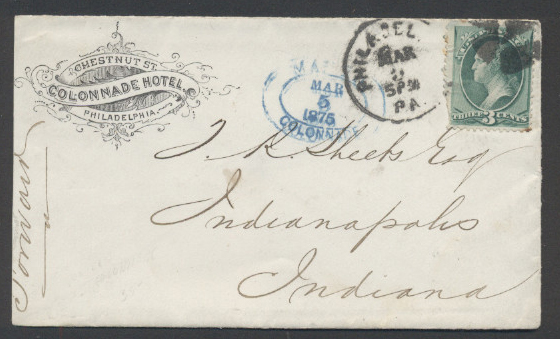 CHESTNUT ST.
COLONNADE HOTEL.
PHILADELPHIA.
MAR
5
1875
COLONNADE
PHILADEL.
MAR
5 PM
PA.
THREE 3 CENTS
J. R. Sheets Esq
Indianapolis
Indiana
Forward